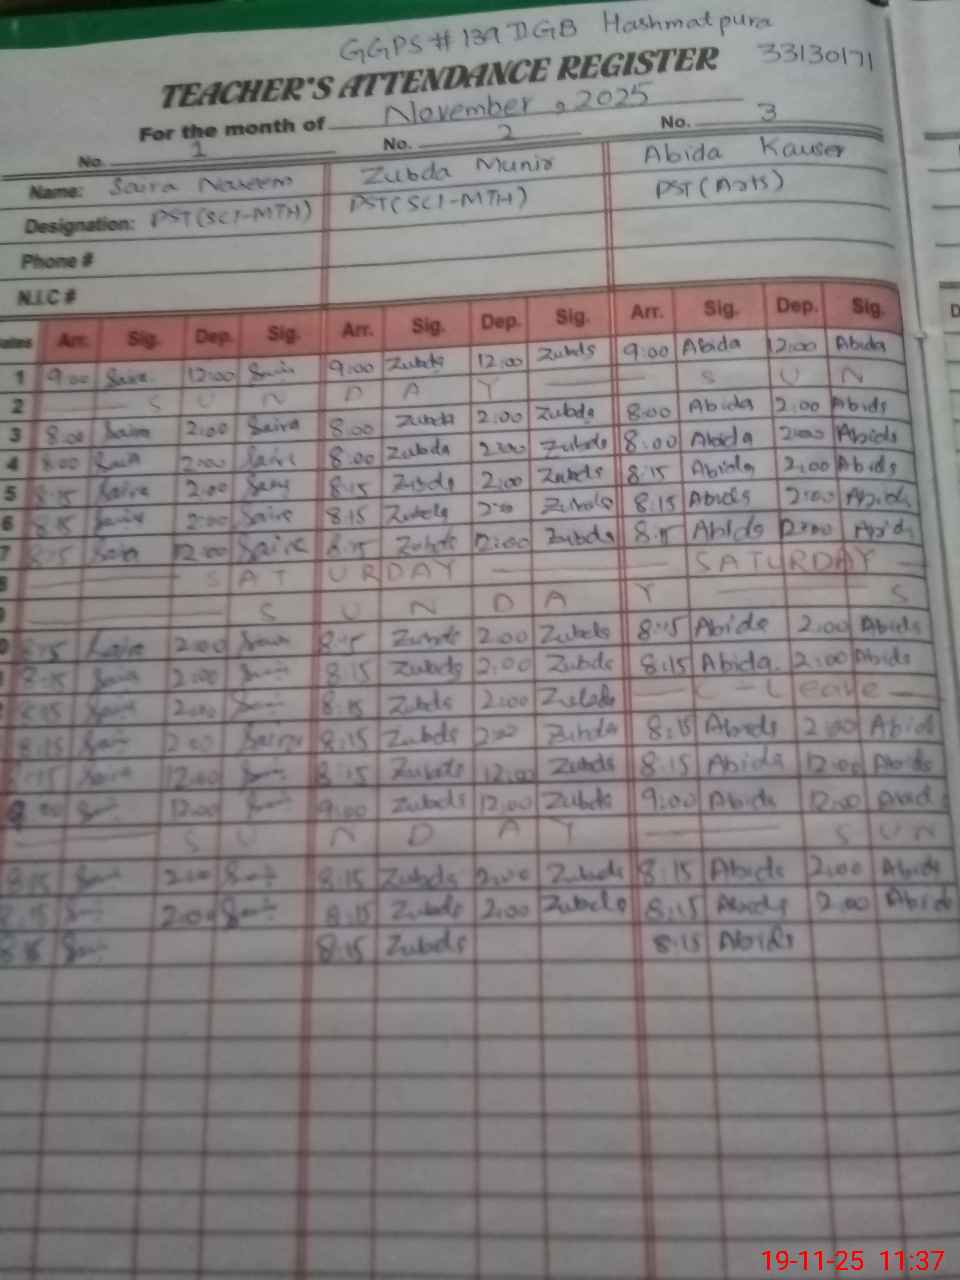 GGPS # 139 II GB Hashmatpura
33130171
TEACHER'S ATTENDANCE REGISTER
For the month of November, 2025
No. 1 No. 2 No. 3
Name: Saira Naseem Zubda Munir Abida Kauser
Designation: PST(SCI-MTH) PST(SCI-MTH) PST(Arts)
Phone #
N.I.C #
Arr. Sig. Dep. Sig. Arr. Sig. Dep. Sig. Arr. Sig. Dep. Sig.
1 9:00 Saira 12:00 Saira 9:00 Zubda 12:00 Zubda 9:00 Abida 12:00 Abida
2 S U N D A Y S U N
3 8:00 Saira 2:00 Saira 8:00 Zubda 2:00 Zubda 8:00 Abida 2:00 Abida
4 8:00 Saira 2:00 Saira 8:00 Zubda 2:00 Zubda 8:00 Abida 2:00 Abida
5 8:15 Saira 2:00 8:15 Zubda 2:00 Zubda 8:15 Abida 2:00 Abida
6 8:15 Saira 2:00 Saira 8:15 Zubda 2:00 Zubda 8:15 Abida 2:00 Abida
7 8:15 Saira 12:00 Saira 8:15 Zubda 12:00 Zubda 8:15 Abida 12:00 Abida
S A T U R D A Y SATURDAY
S U N D A Y S
8:15 Saira 2:00 Saira 8:15 Zubda 2:00 Zubda 8:15 Abida 2:00 Abida
8:15 Saira 2:00 Saira 8:15 Zubda 2:00 Zubda 8:15 Abida 2:00 Abida
8:15 Saira 2:00 Saira 8:15 Zubda 2:00 Zubda C-Leave
8:15 Saira 2:00 Saira 8:15 Zubda 2:00 Zubda 8:15 Abida 2:00 Abida
8:15 Saira 12:00 Saira 8:15 Zubda 12:00 Zubda 8:15 Abida 12:00 Abida
9:00 Saira 12:00 Saira 9:00 Zubda 12:00 Zubda 9:00 Abida 12:00 Abida
S U N D A Y S U N
8:15 Saira 2:00 Saira 8:15 Zubda 2:00 Zubda 8:15 Abida 2:00 Abida
8:15 Saira 2:00 Saira 8:15 Zubda 2:00 Zubda 8:15 Abida 2:00 Abida
8:15 Saira 8:15 Zubda 8:15 Abida
19-11-25 11:37